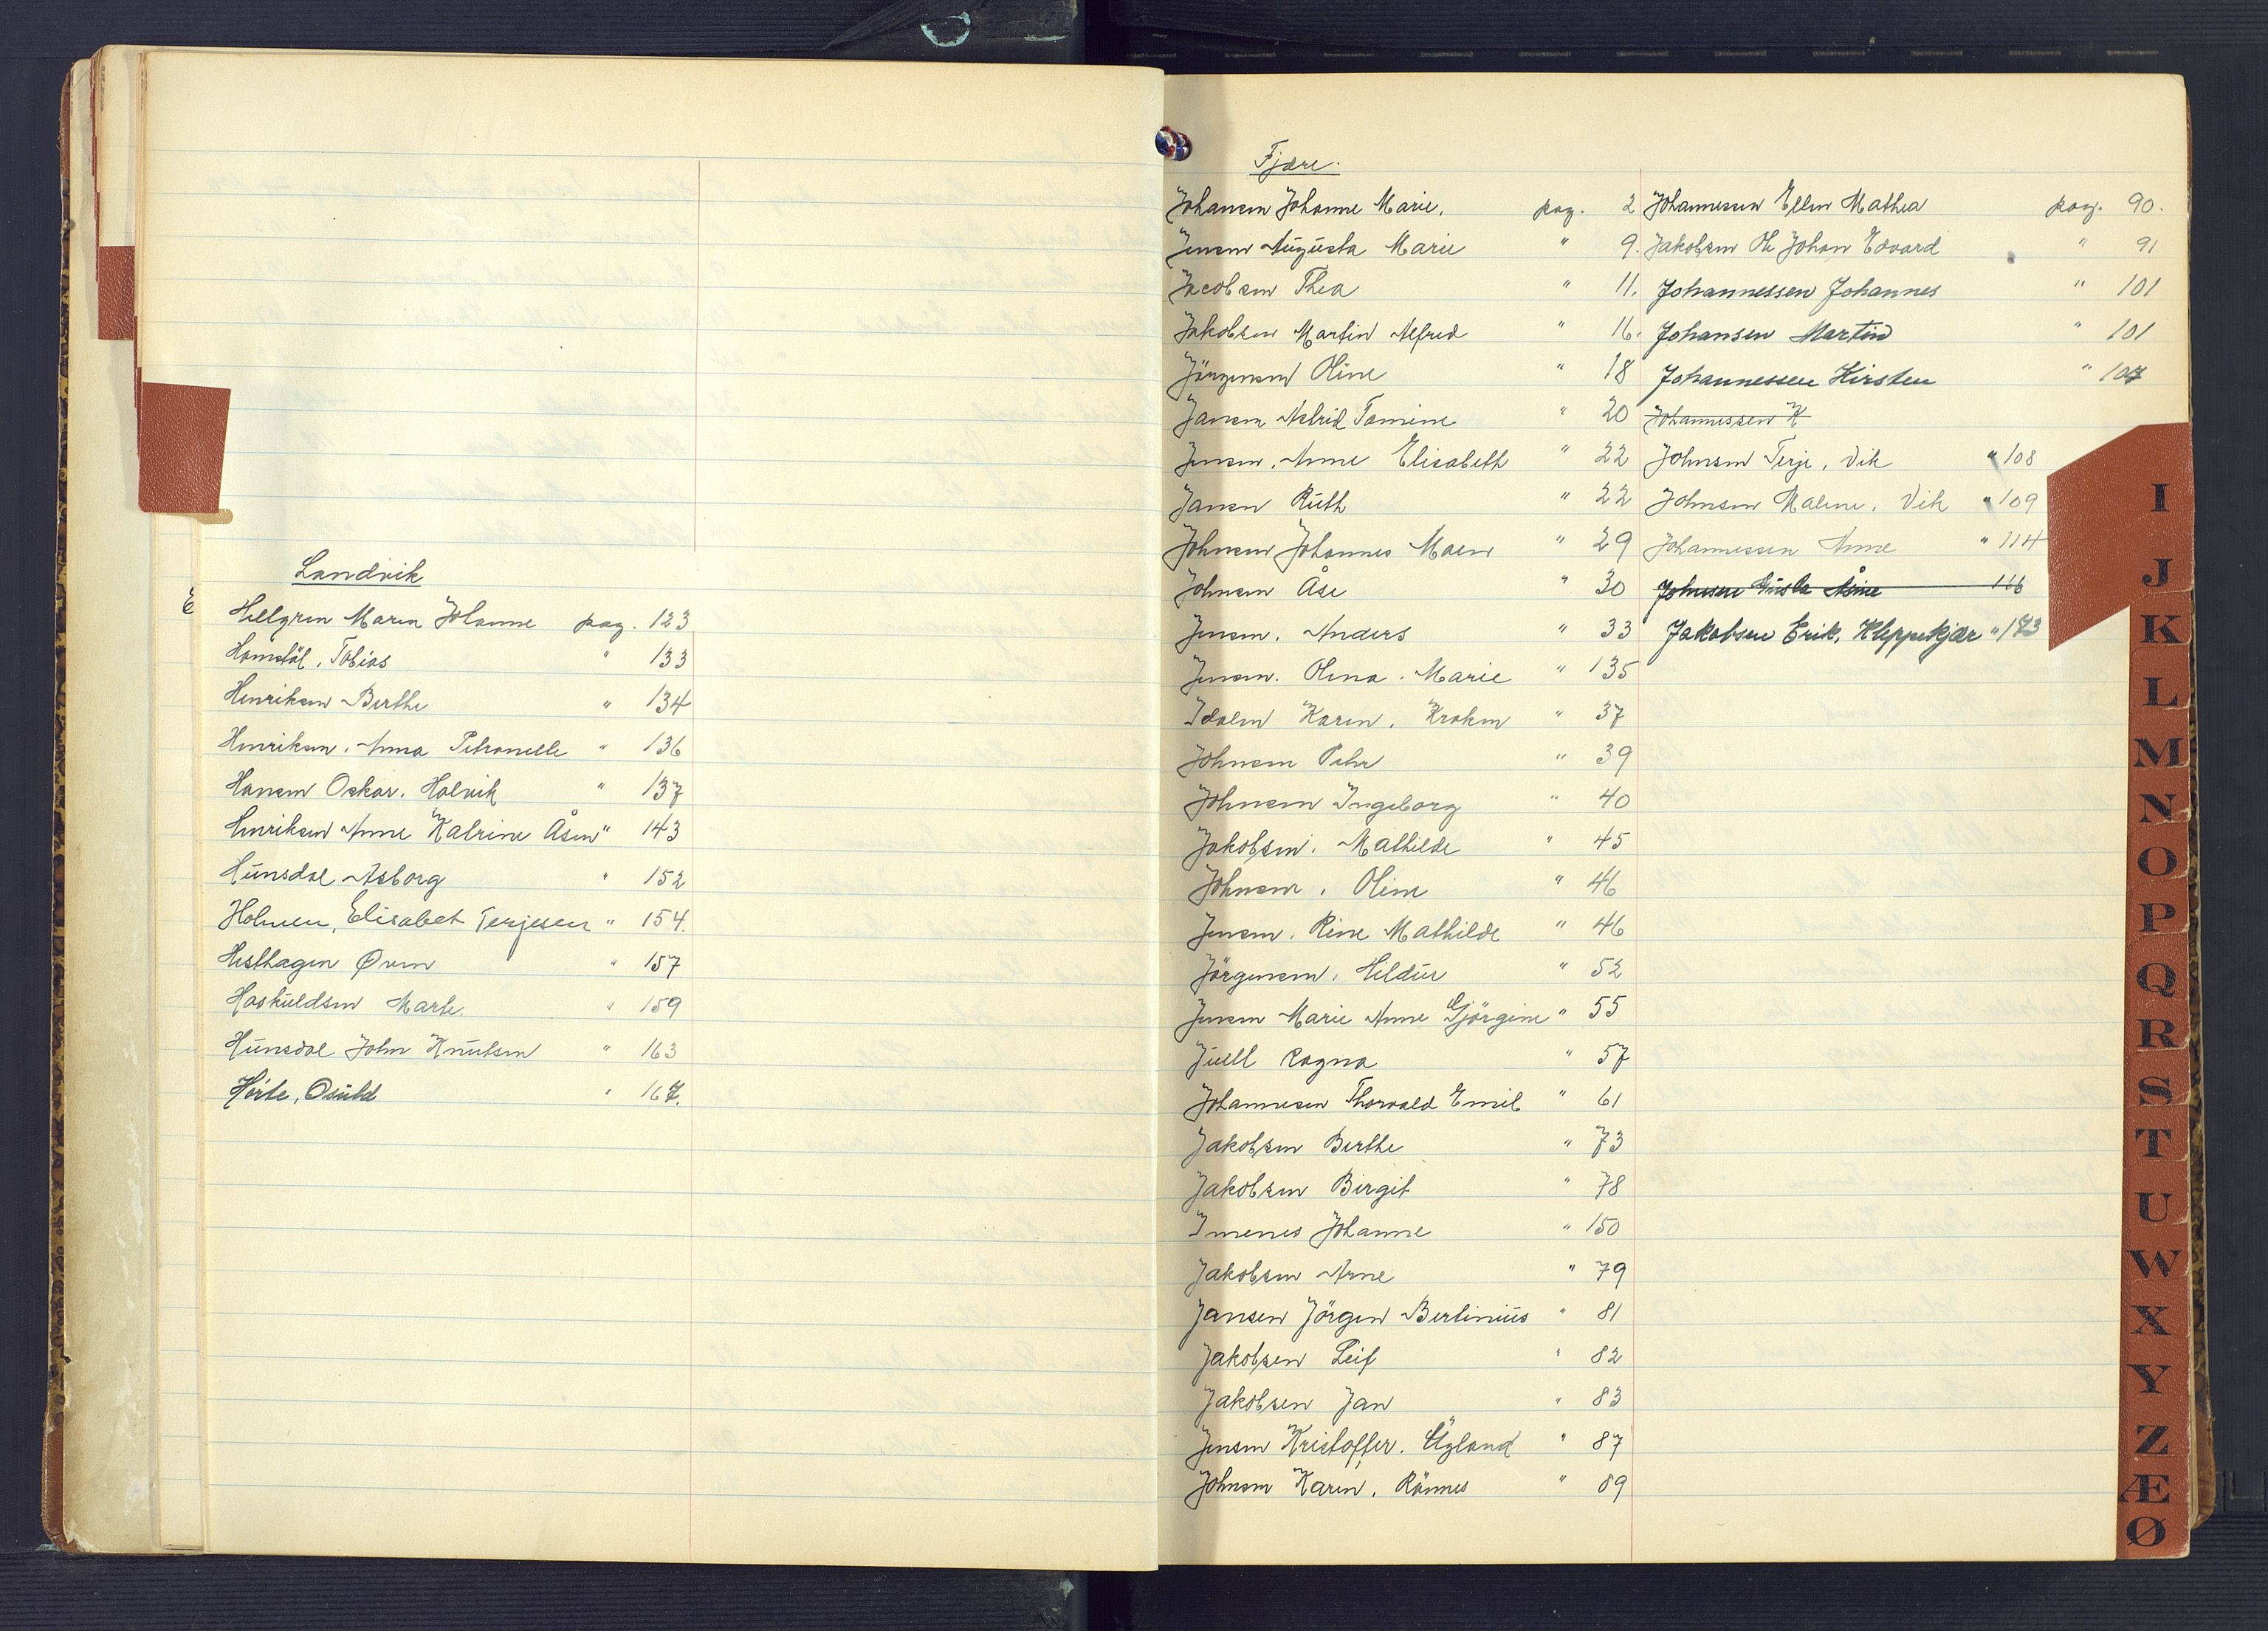 Landvik
E
Hellgren Maren Johanne pag. 123
Homstøl, Tobias " 133
Henriksen Berthe " 134
Henriksen, Anna Petronelle " 136
Hansen Oskar. Holvik " 137
Henriksen Anne Katrine Åsen " 143
Hunsdal Asborg " 152
Holmen, Elisabet Terjesen " 154.
Hesthagen Øven " 157
Haskuldsen Marte. " 159
Hunsdal John Knutsen " 163
Hörte, Osuld " 167.
Fjære.
Johansen Johanne Marie. pag. 2
Jensen Augusta Marie " 9.
Jacobsen Thea " 11.
Jakobsen Martin Alfred " 16.
Jörgensen Oline " 18
Jansen Astrid Tomine " 20
Jensen, Anne Elisabeth " 22
Jansen Ruth " 22
Johnsen Johannes Moen " 29
Johnsen Åse " 30
Jensen. Anders " 33
Jensen. Olena. Marie " 135
Idalen Karen. Kroken " 37
Johnsen Peter " 39
Johnsen Ingeborg " 40
Jakobsen. Mathilde " 45
Johnsen. Oline " 46
Jensen. Rine Mathilde " 46
Jörgensen. Hildur " 52
Jensen Marie Anne Gjörgine " 55
Juell Ragna " 57
Johannesen Thorvald Emil " 61
Jakobsen Berthe " 73
Jakobsen Birgit " 78
Imenes Johanne " 150
Jakobsen Arne " 79
Jansen Jörgen Bertinius " 81
Jakobsen Leif " 82
Jakobsen Jan " 83
Jensen Kristoffer. Ugland " 87
Johnsen Karen. Rönnes " 89
Johannessen Ellen Mathea pag. 90.
Jakobsen Ole Johan Edvard " 91
Johannessen Johannes " 101
Johansen Martin " 101
Johannessen Kirsten " 107
Johannessen K
Johnsen Terje. Vik " 108
Johnsen Malene. Vik " 109
Johannessen Anne " 114
Johnsen Åsine 166
Jakobsen Erik, Kleppekjær " 173
I
J
K
L
M
N
O
P
Q
R
S
T
U
W
X
Y
Z
Æ
Ø